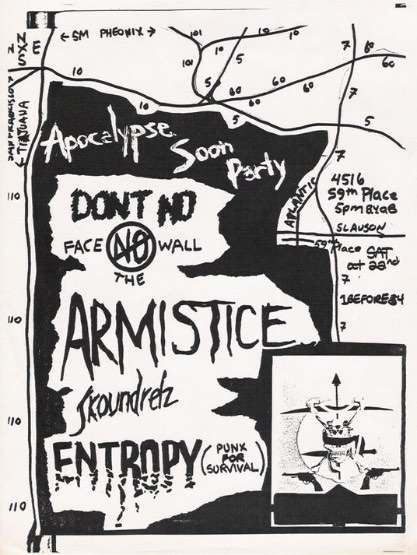 N
N X E
S
←SM PHEONIX→
101
10
101
5
5
60
60
60
60
7
60
10
10
5
5
7
←TIAJUANA
Apocalypse
Soon
Party
7
110
ATLANTIC
4516
59th Place
5pm
DONT NO
SLAUSON
FACE NO WALL
59th Place
SAT
oct 22nd
THE
7
1 BEFORE 84
110
ARMISTICE
7
Skoundrelz
110
ENTROPY (PUNK
FOR
SURVIVAL)
110